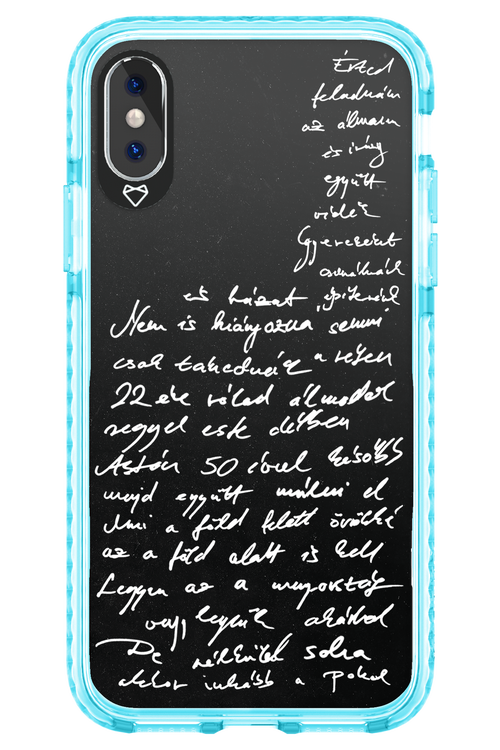 Érted
feladnám
az álmaim
és így
együtt
vidék
Gyereket
csinálnánk
és házat építenénk
Nem is hiányozna semmi
csak takednánk a résen
22 éve rólad álmodok
reggel este délben
Aztán 50 évvel később
majd együtt múlni el
Ami a föld felett örökké
az a föld alatt is kell
Legyen az a mennyország
vagy legyünk akárhol
De nélküled soha
akkor inkább a pokol